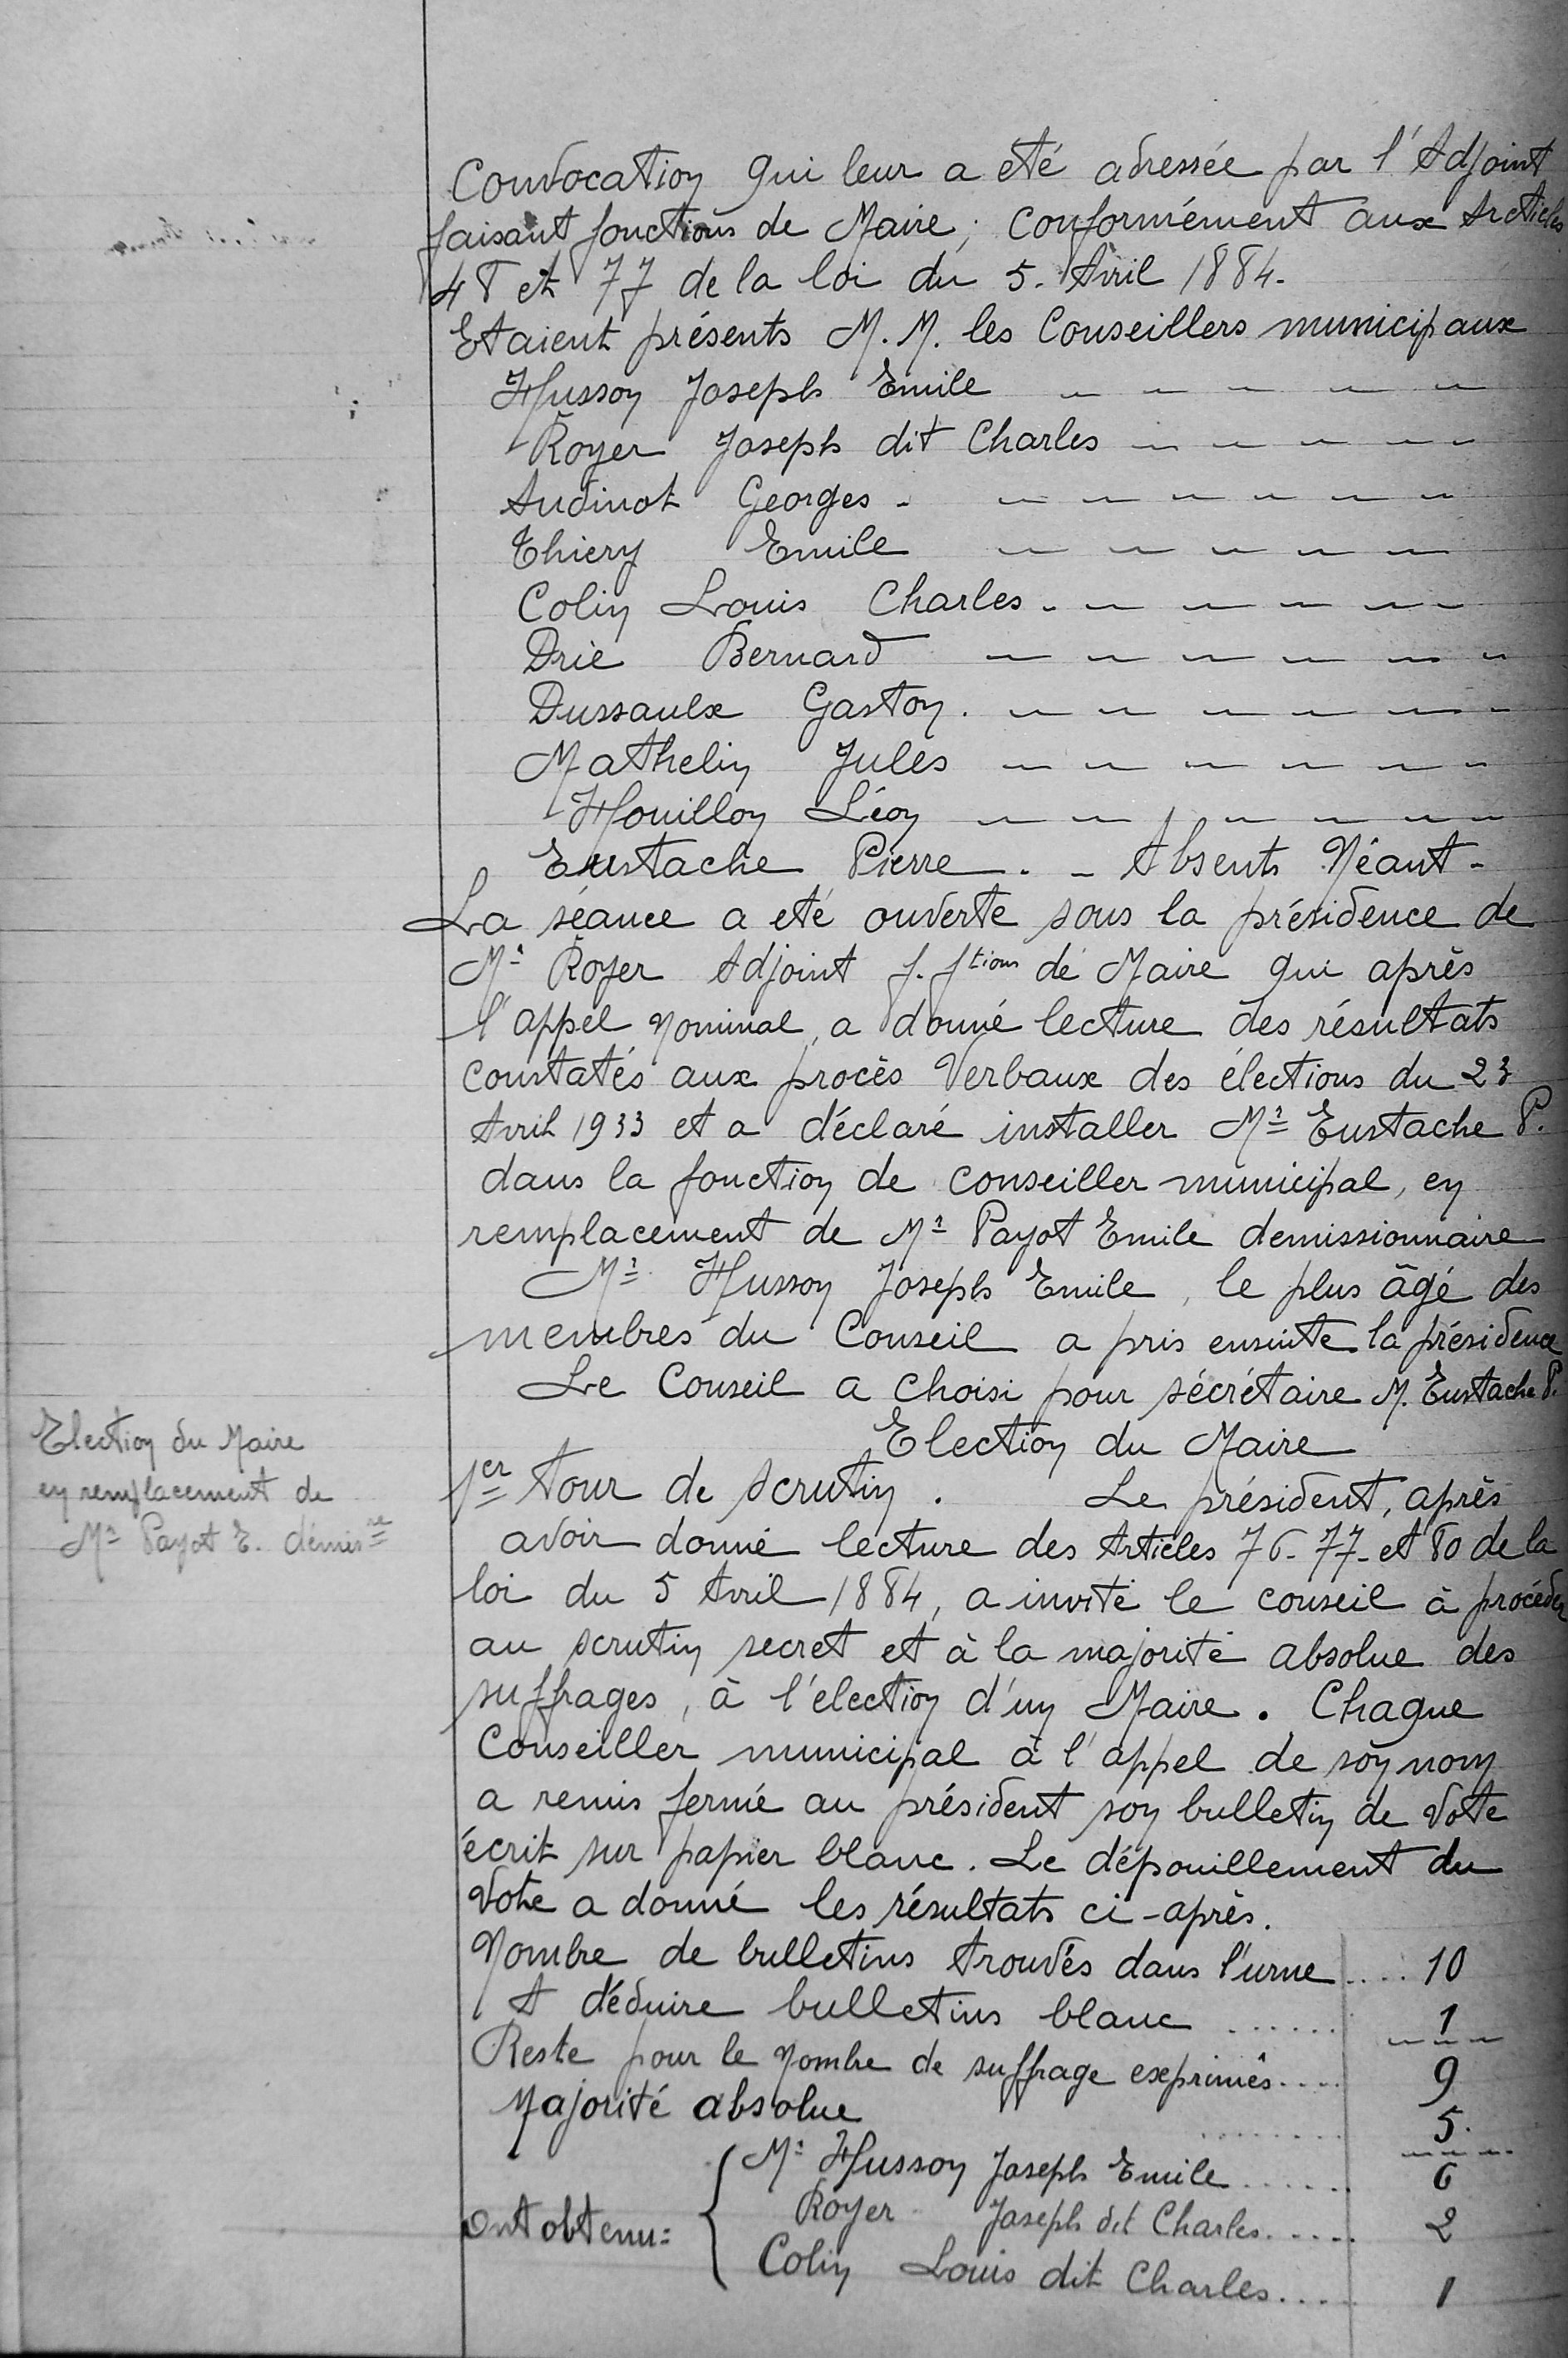 Convocation qui leur a été adressée par l'Adjoint
faisant fonctions de Maire; conformément aux Articles
48 et 77 de la loi du 5. Avril 1884.
Etaient présents M.M. les Conseillers municipaux
Husson Joseph Emile
Royer Joseph dit Charles
Audinot Georges -
Thiery Emile
Colin Louis Charles -
Drie Bernard
Dussaulx Gaston.
Mathelin Jules
Houillon Léon
Eustache Pierre. - Absents Néant -
La séance a eté ouverte sous la présidence de
Mr Royer Adjoint f. ftions de Maire qui après
l'appel nominal, a donné lecture des résultats
constatés aux procès Verbaux des élections du 23
Avril 1933 et a déclaré installer Mr Eustache P.
dans la fonction de conseiller municipal, en
remplacement de Mr Payot Emile demissionnaire
Mr Husson Joseph Emile, le plus âgé des
membres du Conseil a pris ensuite la présidence
Le Conseil a choisi pour sécrétaire M. Eustache P.
Election du Maire
Election du Maire
en remplacement de
Mr Payot E. démisre
1er tour de scrutin. Le président, après
avoir donné lecture des Articles 76-77- et 80 de la
loi du 5 Avril 1884, a invité le conseil à procéder
au scrutin secret et à la majorité absolue des
suffrages, à l'élection d'un Maire. Chaque
Conseiller municipal à l'appel de son nom
a remis fermé au président son bulletin de vote
écrit sur papier blanc. Le dépouillement du
Vote a donné les résultats ci-après.
Nombre de bulletins trouvés dans l'urne .... 10
A déduire bulletins blanc ...... 1
Reste pour le nombre de suffrage exprimés .... 9
Majorité absolue ........ 5.
Mr Husson Joseph Emile ...... 6
Ont obtenu: Royer Joseph dit Charles ..... 2
Colin Louis dit Charles .... 1